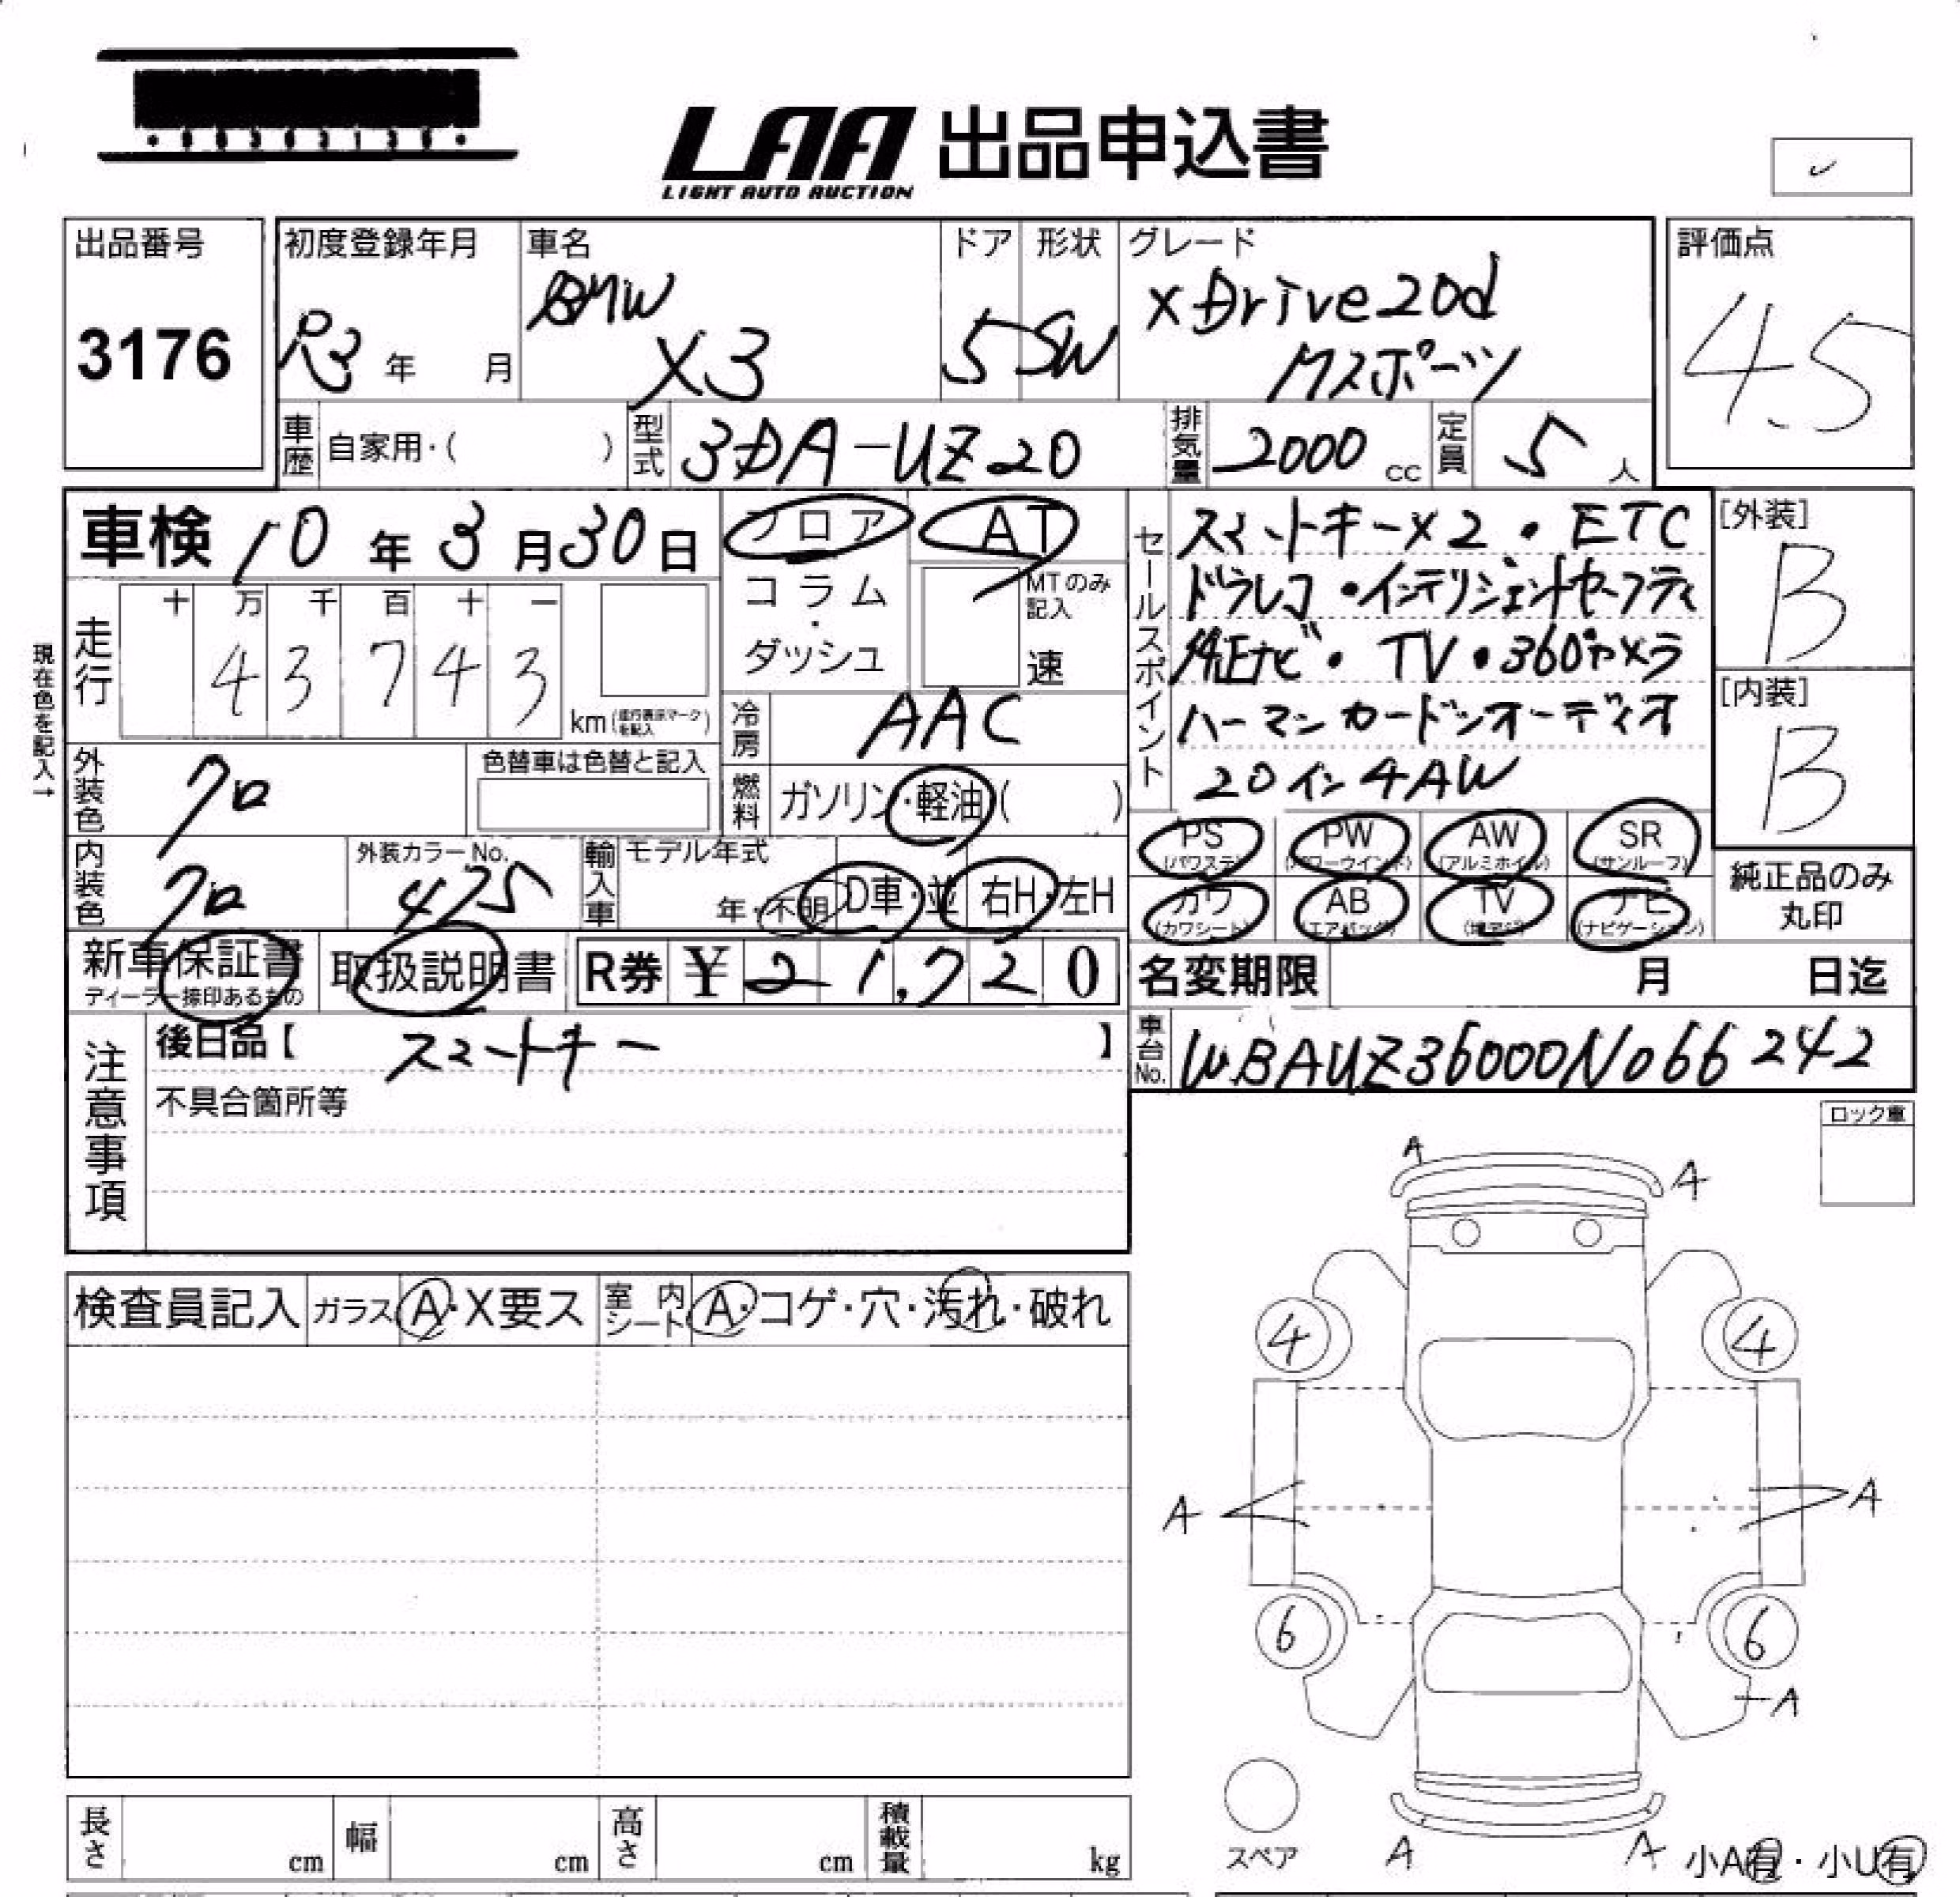 LAA 出品申込書
LIGHT AUTO AUCTION
出品番号
3176
初度登録年月
R3 年 月
車名
BMW
X3
ドア
5
形状
SW
グレード
xDrive20d
Mスポーツ
評価点
4.5
車歴 自家用・( )
型式 3DA-UZ20
排気量 2000 cc
定員 5 人
車検 10 年 3 月 30 日
フロア
コラム
・
ダッシュ
AT
MTのみ
記入
速
現在色を記入→
走行
十 万 千 百 十 一
4 3 7 4 3
km (走行表示マークを記入)
冷房 AAC
燃料 ガソリン・軽油 ( )
外装色 クロ
色替車は色替と記入
内装色 クロ
外装カラーNo.
475
輸入車
モデル年式
年・不明
D車・並
右H・左H
セールスポイント
スマートキー×2・ETC
ドラレコ・インテリジェントセーフティ
純正ナビ・TV・360°カメラ
ハーマンカードンオーディオ
20インチAW
[外装]
B
[内装]
B
PS (パワステ)
PW (パワーウインド)
AW (アルミホイル)
SR (サンルーフ)
カワ (カワシート)
AB (エアバッグ)
TV (地デジ)
ナビ (ナビゲーション)
純正品のみ
丸印
新車保証書
ディーラー捺印あるもの
取扱説明書
R券 ¥ 21,720
名変期限 月 日迄
車台No. WBAUZ36000N066242
注意事項
後日品【 スマートキー 】
不具合箇所等
ロック車
検査員記入
ガラス A・X要ス
室内シート A・コゲ・穴・汚れ・破れ
A
A
4
4
A
A
6
6
A
スペア
A
A
小A有・小U有
長さ cm
幅 cm
高さ cm
積載量 kg